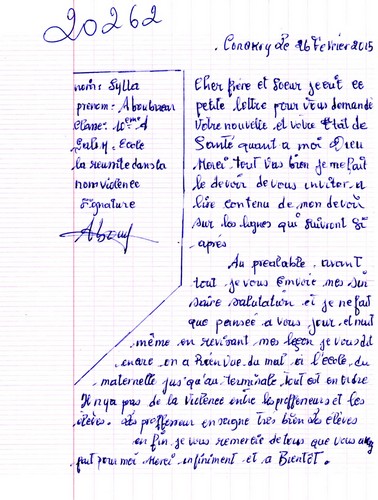 20262
. Conakry le 26 Février 2015
nom: Sylla
prenom: Aboubacar
Classe: 10eme A
Galaxy: Ecole
la reussite dans la
non violence
Signature
Cher frère et Soeur je ecrit ce
petite lettre pour vous demande
Votre nouvelle et votre Etat de
Santé quant a moi Dieu
Merci tout Vas bien je me fait
le devoir de vous inviter a
lire contenu de mon devoir
sur les lignes qui suivront Si
après
Au prealable, avant
tout je vous Envoie mes sin
saire salutation et je ne fait
que pensée a vous jour et nuit
même en revisant mes leçon je vous dit
encore on a Rien vue du mal ai l'ecole du
maternelle jus'qu'au terminale, tout est en ordre
Il n'ya pas de la Violence entre les proffeneurs et les
élèves. Les proffeneur enseigne très bien les élèves
en fin je vous remercie de tous que vous
fait pour moi Merci infiniment et a Bientôt.